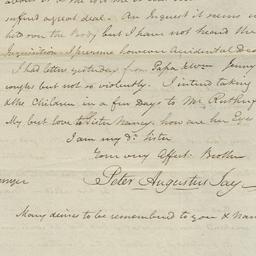 suffered a great deal. An Inquest it seems w
held over the Body but I have not heard the
Inquisition I presume however Accidental Dea
I had letters yesterday from Papa & Wm. Jenny
coughs but not so violently. I intend taking
& the Children in a few Days to Mr. Ruthing
My best love to Sister Nancy, how are her Eyes
I am my dr. Sister
Your very Affect. Brother
Peter Augustus Jay
Many desires to be remembered to you & Nan